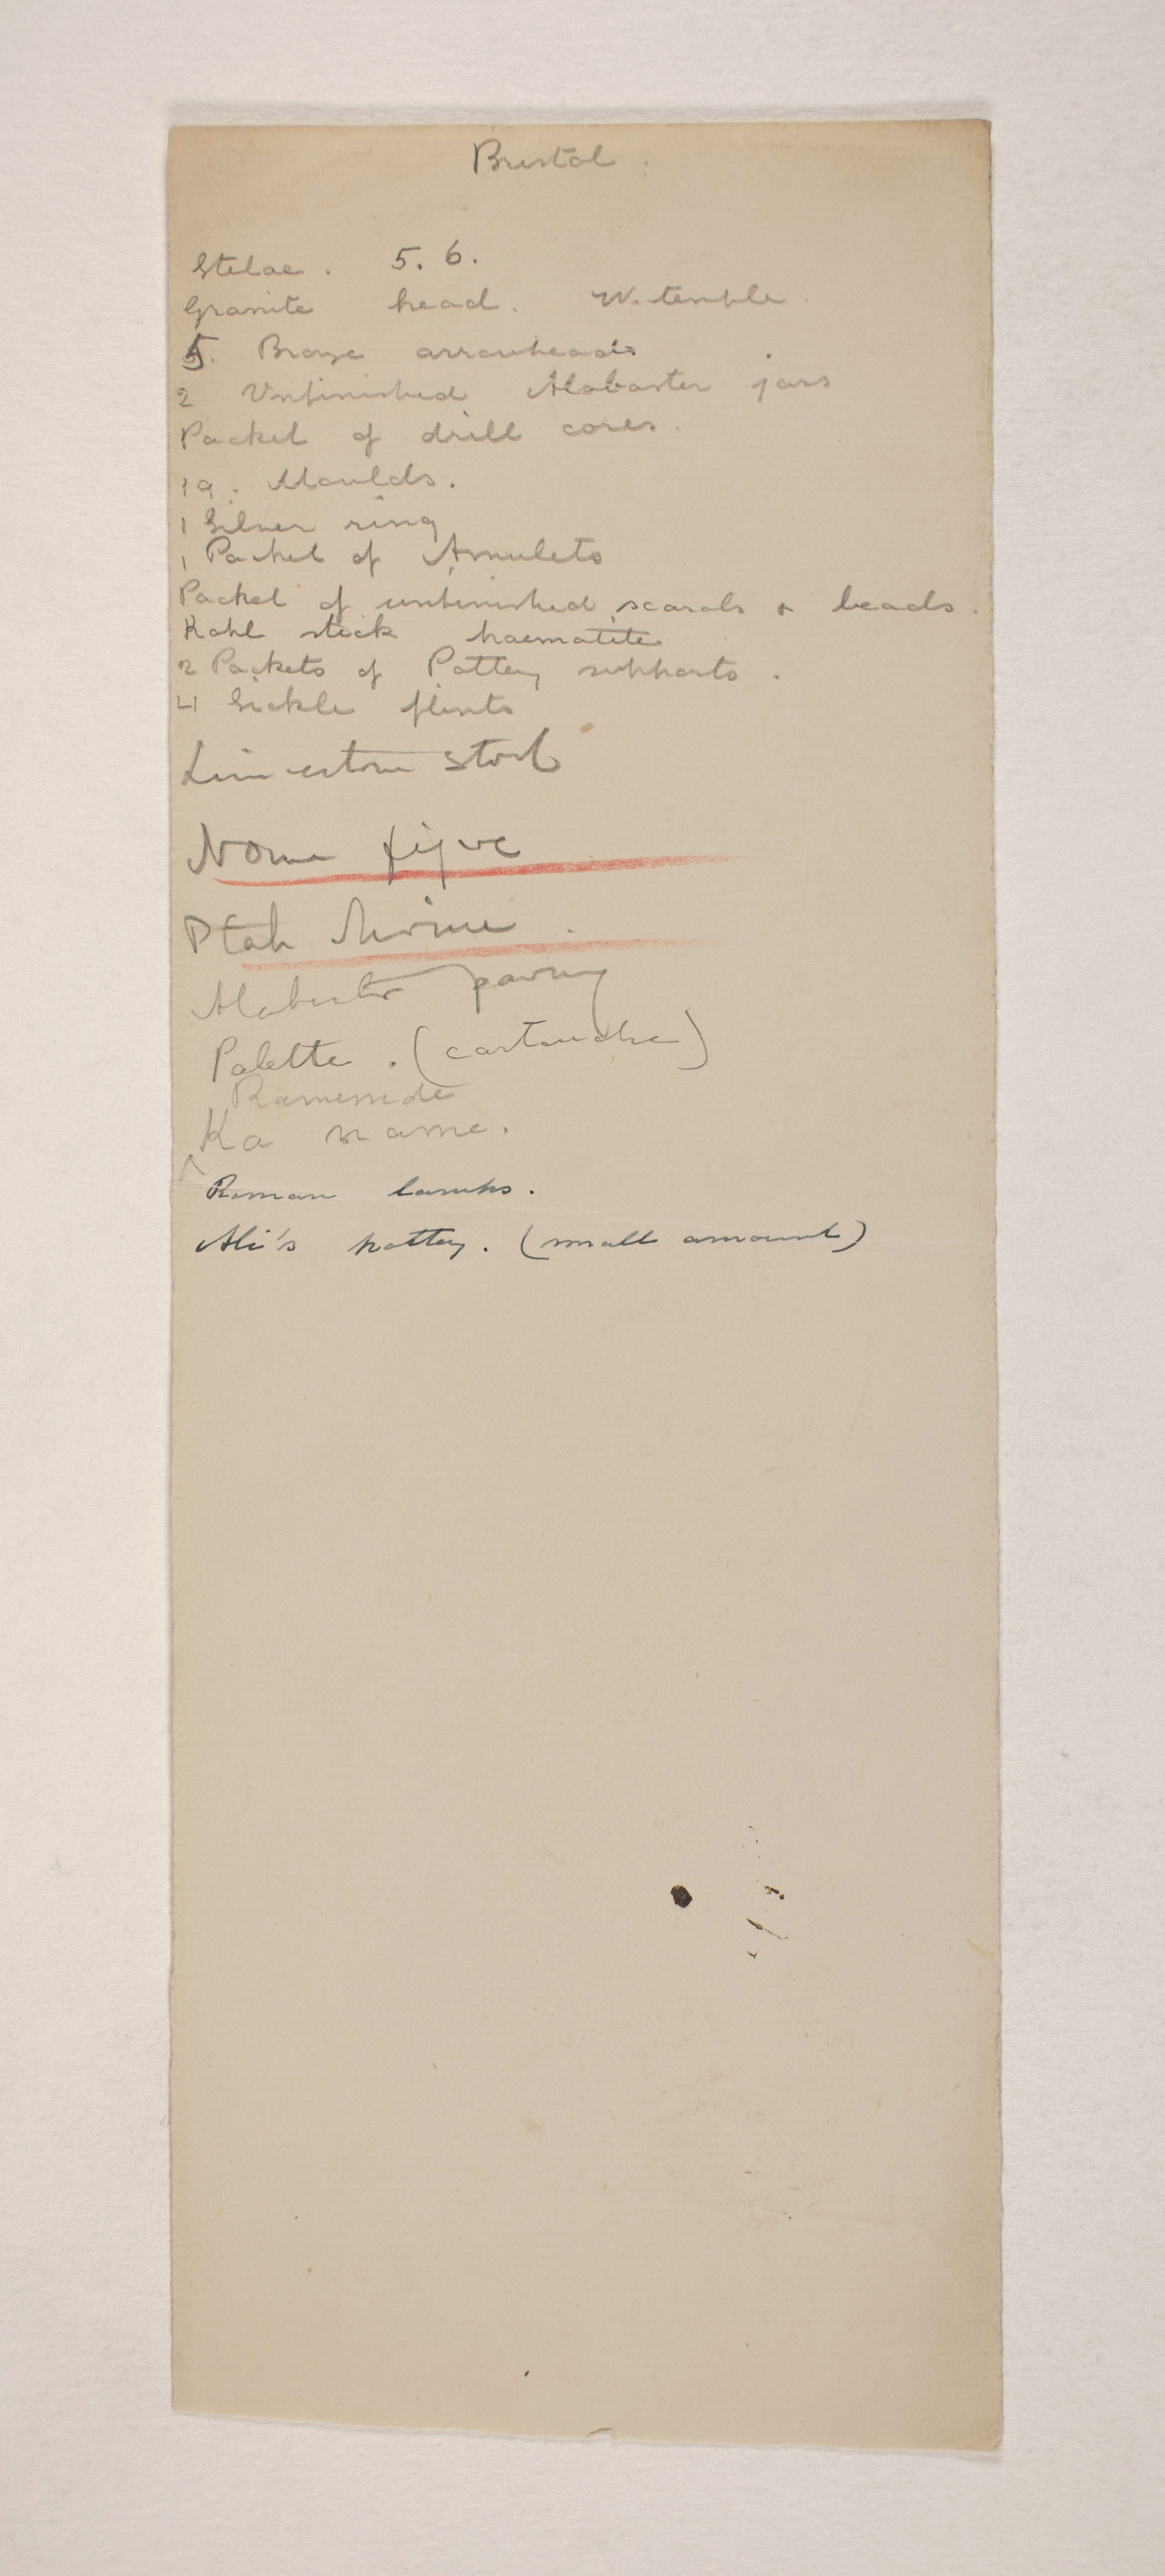 Bristol.
Stelae. 5. 6.
Granite head. W. temple.
5. Bronze arrowheads
2 Unfinished Alabaster jars
Packet of drill cores.
19. Moulds.
1 Silver ring
1 Packet of Amulets
Packet of unfinished scarabs & beads.
Kohl stick haematite
2 Packets of Pottery supports.
4 Sickle flints
Limestone
Nome figure
Ptah shrine.
Alabaster
Palette. (cartouche)
Ramesside
Ka name.
Roman lamps.
Ali's pottery. (small amount)